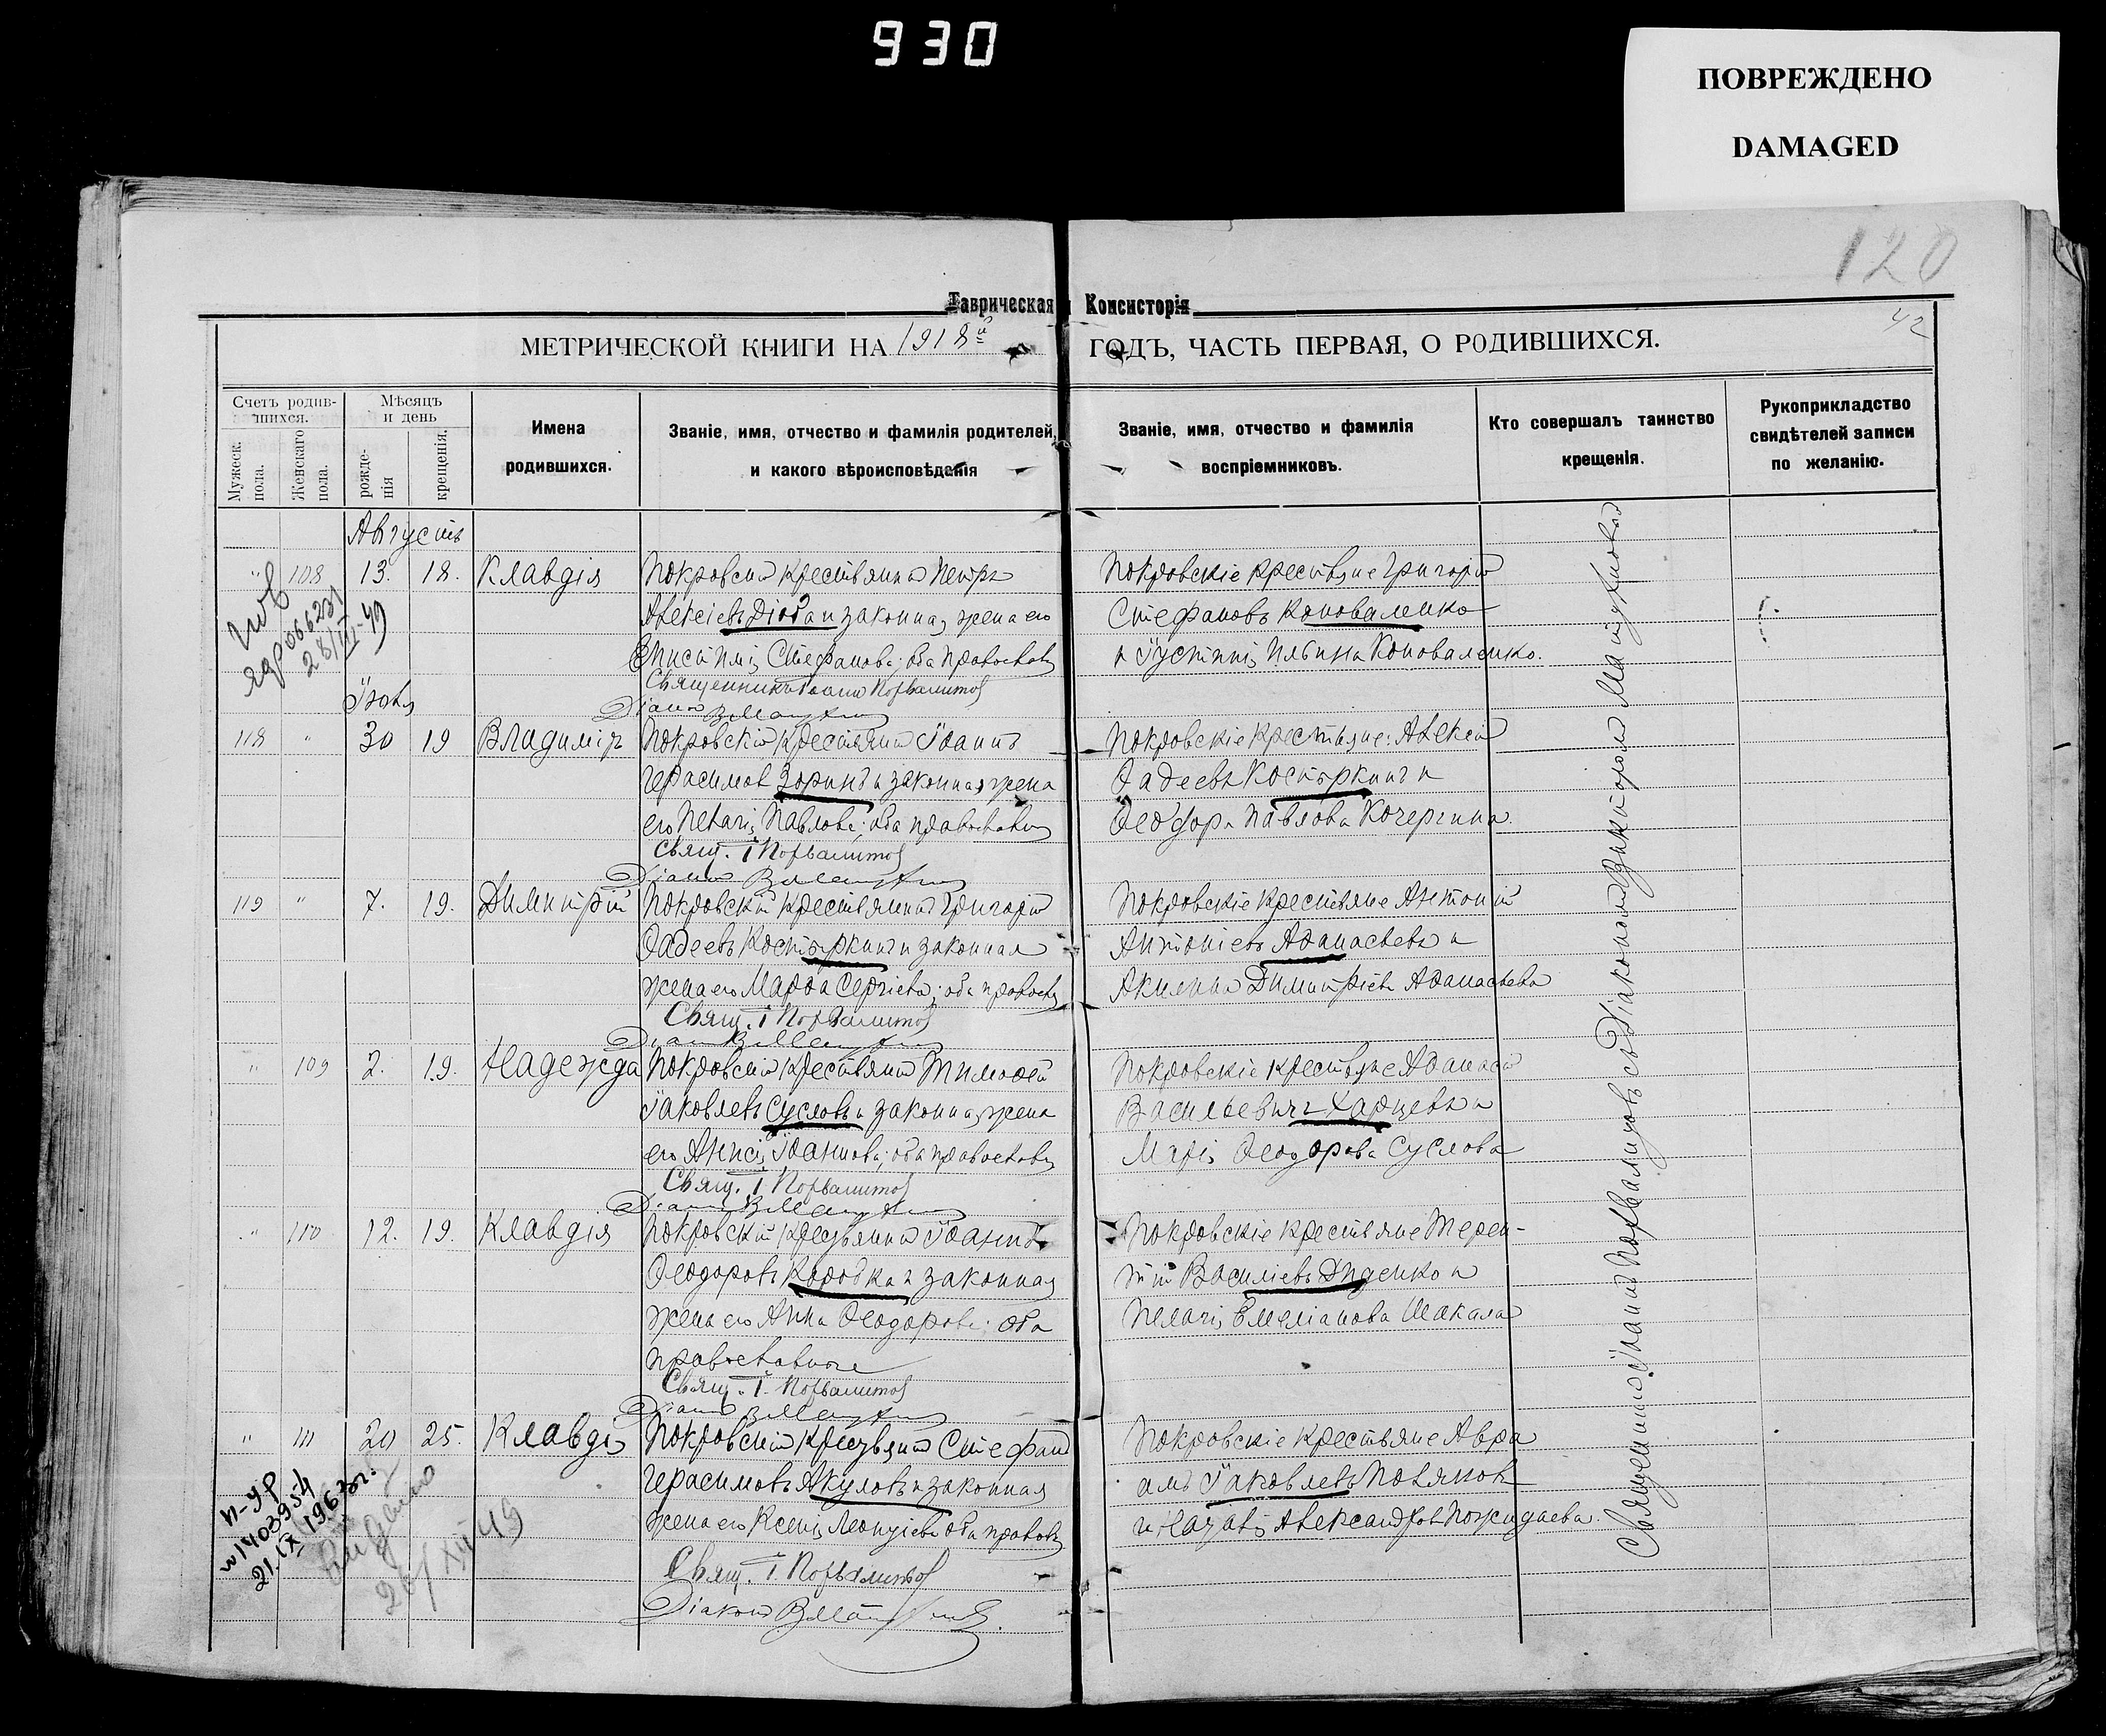 930
ПОВРЕЖДЕНО
DAMAGED
120
Таврическая Консисторія
42
МЕТРИЧЕСКОЙ КНИГИ НА 1918й ГОДЪ, ЧАСТЬ ПЕРВАЯ, О РОДИВШИХСЯ.
Счетъ родив-
шихся.
Мужеск. пола.
Женскаго пола.
Мѣсяцъ
и день
рожде-
нія
крещенія.
Имена
родившихся.
Званіе, имя, отчество и фамилія родителей,
и какого вѣроисповѣданія
Званіе, имя, отчество и фамилія
воспріемниковъ.
Кто совершалъ таинство
крещенія.
Рукоприкладство
свидѣтелей записи
по желанію.
Августъ
" 108 13. 18. Клавдія
Покровскій крестьянинъ Петръ
Алексіевъ Діоба и законная жена его
Стефанова; оба православн
Священникъ Іоаннъ
Діаконъ
Покровскіе крестьяне Григорій
Стефановъ Коноваленко
и Іустинія Ильина Коноваленко.
ЯР 066231
28/III-49
Іюль
118 " 30 19 Владиміръ
Покровскій крестьянинъ Іоаннъ
Герасимов Зоринъ и законная жена
его Пелагія Павлова; оба православн
Свящ. І
Діаконъ
Покровскіе крестьяне: Алексій
Фадеевъ Костыркинъ и
Феодора Павлова Кочергина.
119 " 7. 19. Димитрій
Покровскій крестьянинъ Григорій
Фадеевъ Костыркинъ и законная
жена его Марфа Сергіева; оба правосл
Свящ. І
Діаконъ
Покровскіе крестьяне Антоній
Антоніевъ Афанасьевъ и
Акилина Димитріев Афанасьева
" 109 2. 19. Надежда
Покровскій крестьянинъ Тимофей
Іаковлевъ Сусловъ и законная жена
его Анисія Іоаннова; оба православн
Свящ. І
Діаконъ
Покровскіе крестьяне Афанасій
Васильевичъ Харцевъ и
Марія Феодорова Суслова
" 110 12. 19. Клавдія
Покровскій крестьянинъ Іоаннъ
Феодоровъ Коробка и законная
жена его Анна Феодорова; оба
православные
Свящ. І.
Діаконъ
Покровскіе крестьяне Терен-
тій Василіевъ Диденко и
Пелагія Емеліанова Шакала
" 111 20 25. Клавдія
Покровскій крестьянинъ Стефанъ
Герасимовъ Акуловъ и законная
жена его Ксенія Леонтіева оба правосл
Свящ. І.
Діаконъ
Покровскіе крестьяне Авра
амъ Іаковлевъ Поляков
и Наталія Александров Пожидаева.
1403954
21.IX 1963г.
Выдано
20/XII 49
Священникъ Іоаннъ съ Діакономъ Викторомъ